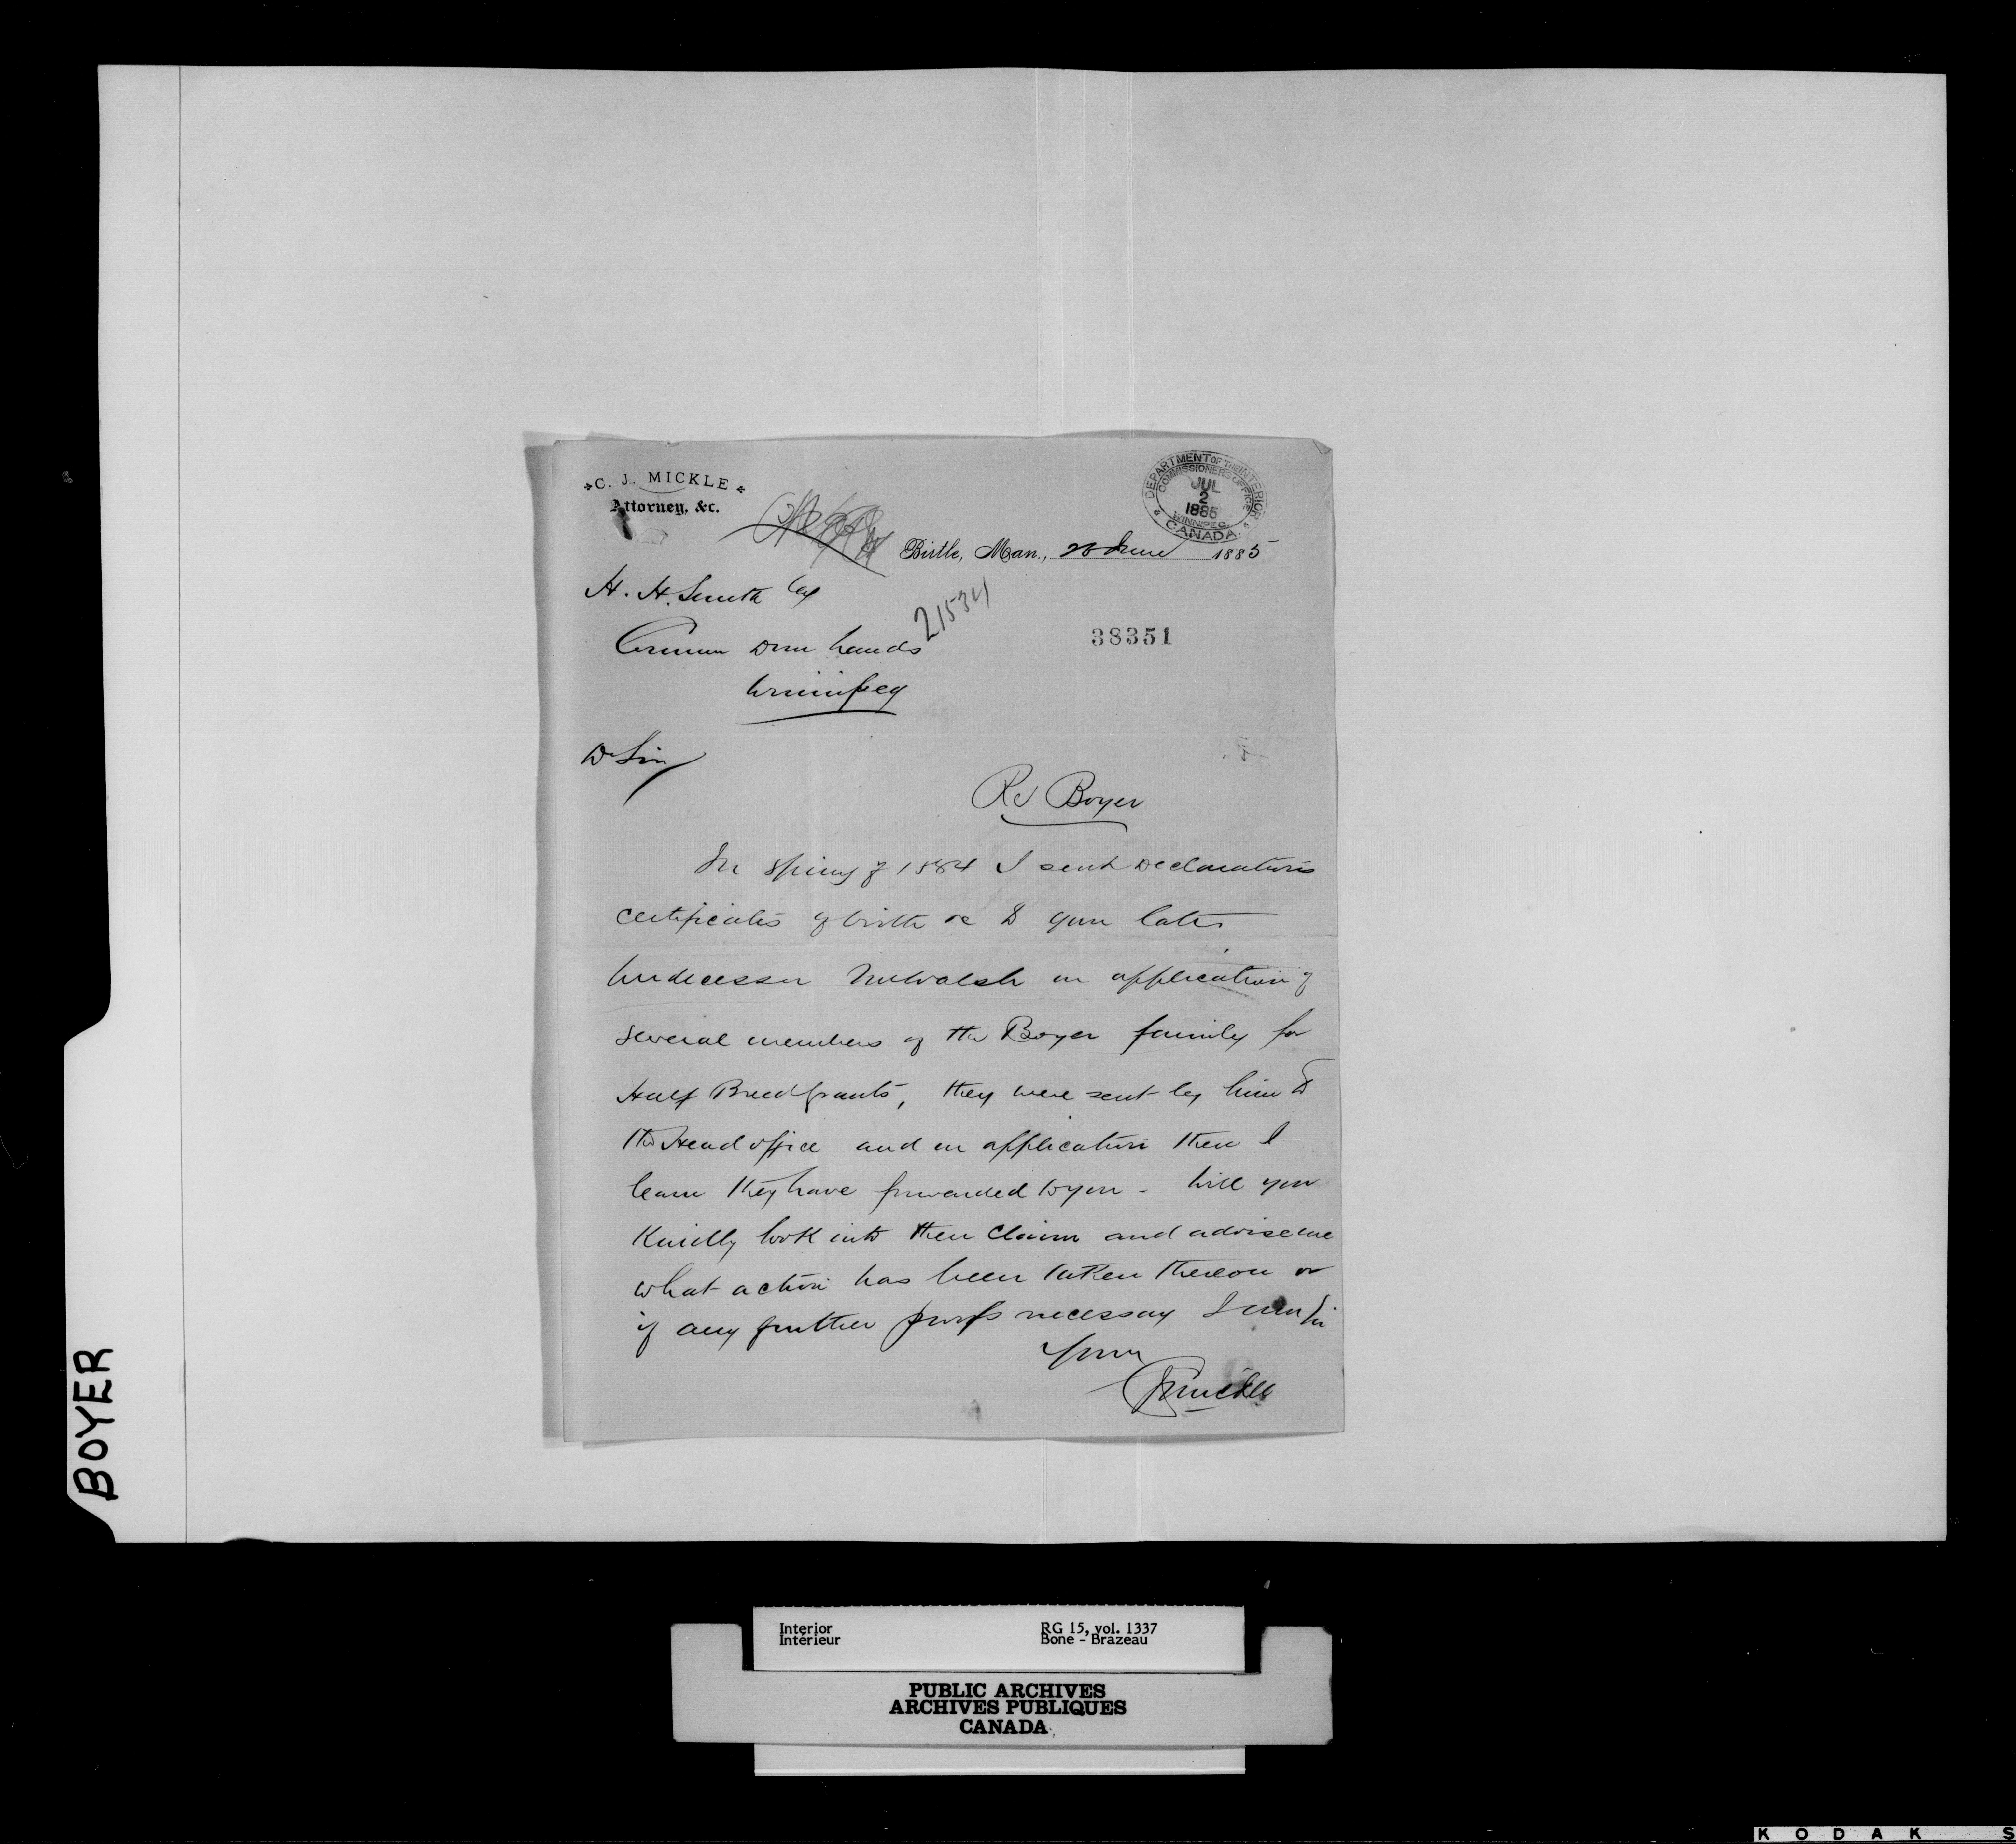 C. J. MICKLE
Attorney, &c.
DEPARTMENT OF THE INTERIOR
COMMISSIONERS OFFICE
JUL
2
1885
WINNIPEG
CANADA
Birtle, Man., 28 June 1885
H. H. Smith Esq
21534
38351
Commr Dom Lands
Winnipeg
D Sir
Re Boyer
In Spring of 1884 I sent Declarations
certificates of birth &c to your late
Predecessor Mr Walsh on application of
several members of the Boyer family for
Half Breed Grants, they were sent by him to
the Head office and on application there I
learn they have forwarded to you - Will you
Kindly look into their claim and advise me
what action has been taken thereon or
if any further proofs necessary I am Sir
Yours
CJ Mickle
BOYER
Interior
Intérieur
RG 15, vol. 1337
Bone - Brazeau
PUBLIC ARCHIVES
ARCHIVES PUBLIQUES
CANADA
KODAK S